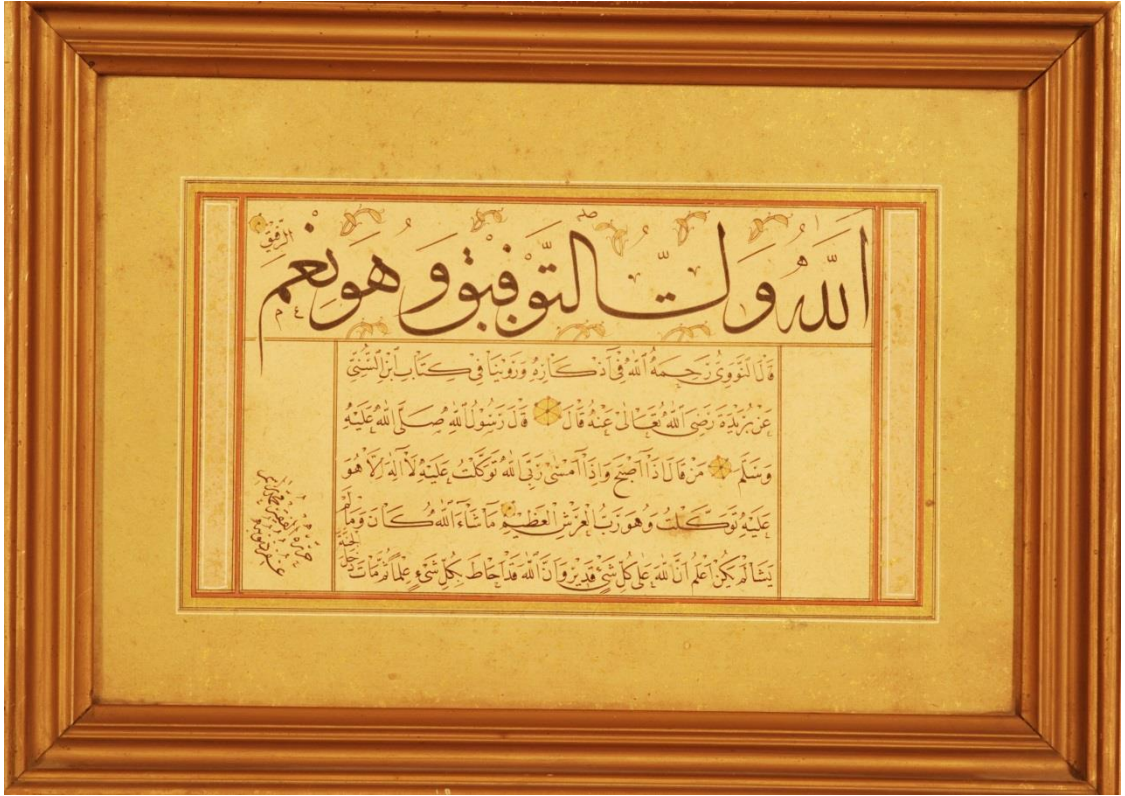 اَللّٰهُ وَلِيُّ التَّوْفِيْقِ وَهُوَ نِعْمَ الرَّفِيْقُ
قَالَ النَّوَوِيُّ رَحِمَهُ اللّٰهُ فِي اَذْكَارِهِ وَرَوَيْنَا فِي كِتَابِ ابْنِ السُّنِّيِّ
عَنْ بُرَيْدَةَ رَضِيَ اللّٰهُ تَعَالٰى عَنْهُ قَالَ قَالَ رَسُوْلُ اللّٰهِ صَلَّى اللّٰهُ عَلَيْهِ
وَسَلَّمَ مَنْ قَالَ اِذَا اَصْبَحَ وَاِذَا اَمْسٰى رَبِّيَ اللّٰهُ تَوَكَّلْتُ عَلَيْهِ لَا اِلٰهَ اِلَّا هُوَ
عَلَيْهِ تَوَكَّلْتُ وَهُوَ رَبُّ الْعَرْشِ الْعَظِيْمِ مَا شَاءَ اللّٰهُ كَانَ وَمَا لَمْ
يَشَا لَمْ يَكُنْ اَعْلَمُ اَنَّ اللّٰهَ عَلٰى كُلِّ شَيْءٍ قَدِيْرٌ وَاَنَّ اللّٰهَ قَدْ اَحَاطَ بِكُلِّ شَيْءٍ عِلْمًا ثُمَّ مَاتَ دَخَلَ الْجَنَّةَ
حرره الفقير محمد
غفر ذنوبه